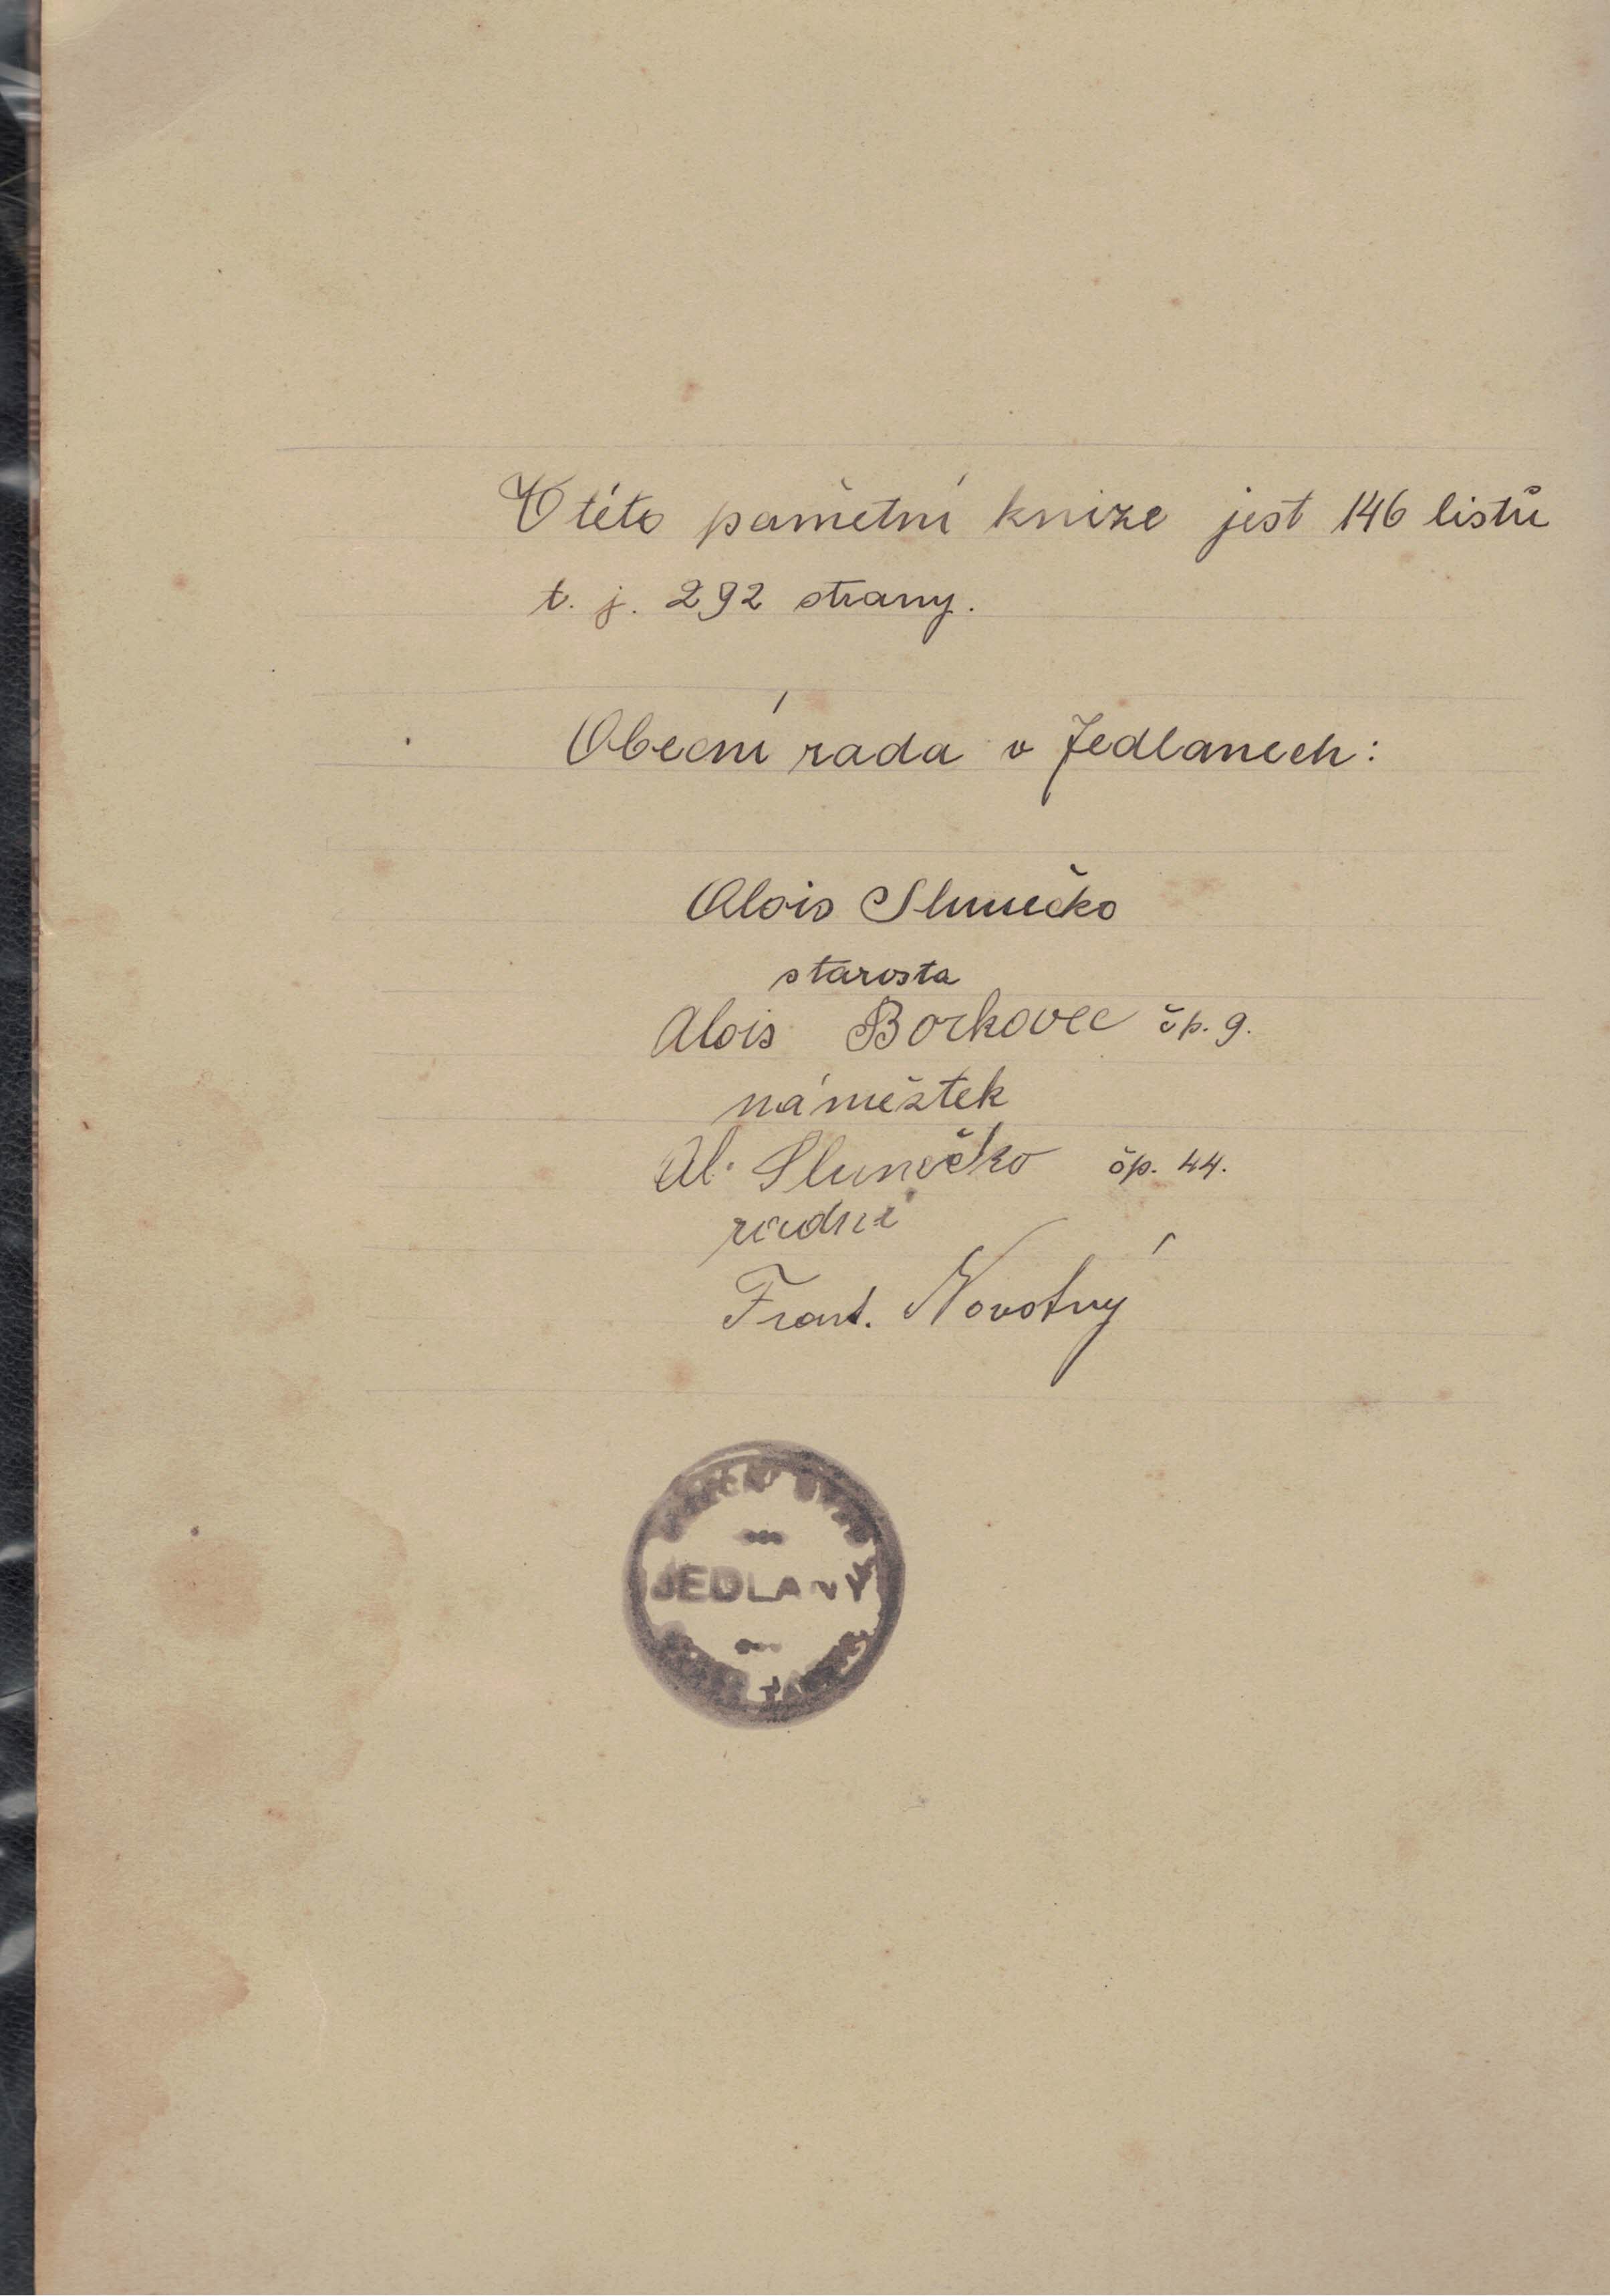 V této pamětní knize jest 146 listů
t. j. 292 strany.
Obecní rada v Jedlanech:
Alois Slunečko
starosta
Alois Borkovec čp. 9.
náměstek
Al. Slunečko čp. 44.
radní
Frant. Novotný
JEDLANY